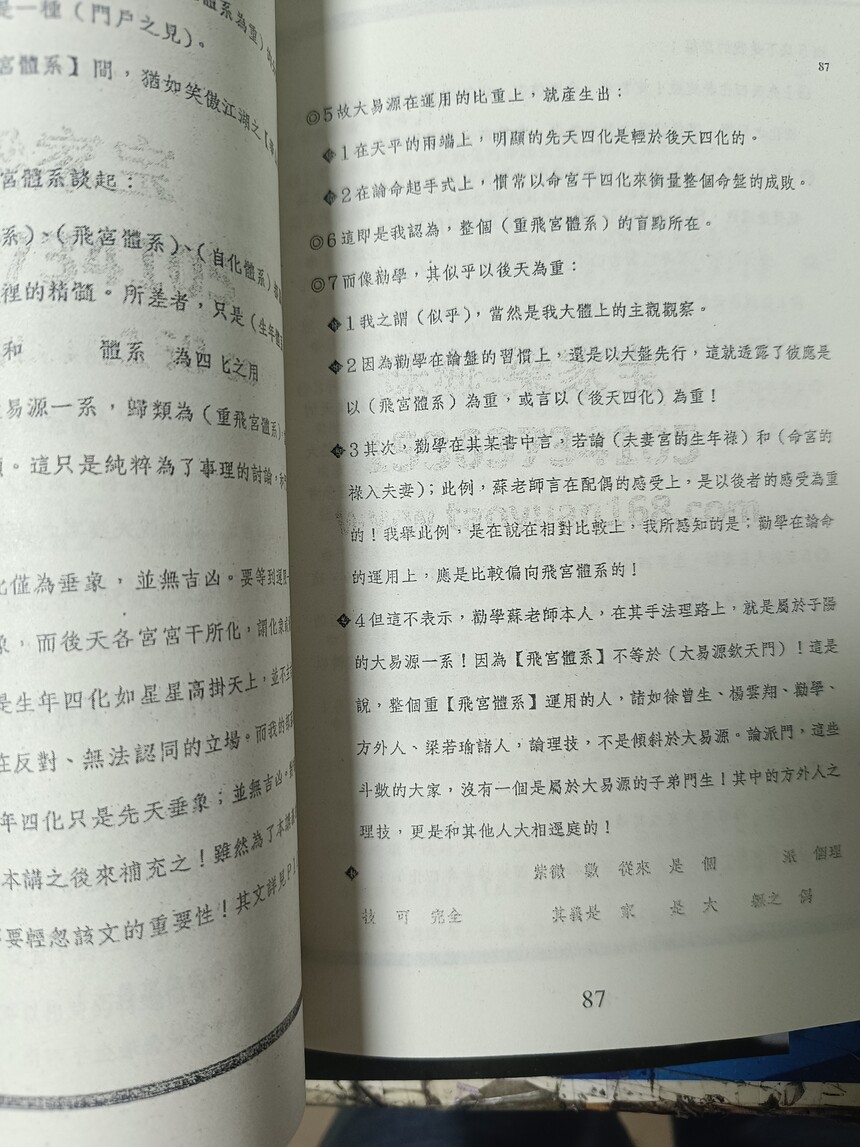 是一種（門戶之見）。
宮體系】間，猶如笑傲江湖之【
宮體系談起：
系）、（飛宮體系）、（自化體系）
裡的精髓。所差者，只是（生年體
和 體系 為四化之用
易源一系，歸類為（重飛宮體系）
。這只是純粹為了事理的討論，
化僅為垂象，並無吉凶。要等到運
象，而後天各宮宮干所化，謂化象
是生年四化如星星高掛天上，並不
在反對、無法認同的立場。而我的
年四化只是先天垂象；並無吉凶。
本講之後來補充之！雖然為了本講
要輕忽該文的重要性！其文詳見P1
87
◎5故大易源在運用的比重上，就產生出：
1在天平的兩端上，明顯的先天四化是輕於後天四化的。
2在論命起手式上，慣常以命宮干四化來衡量整個命盤的成敗。
◎6這即是我認為，整個（重飛宮體系）的盲點所在。
◎7而像勸學，其似乎以後天為重：
1我之謂（似乎），當然是我大體上的主觀觀察。
2因為勸學在論盤的習慣上，還是以大盤先行，這就透露了彼應是
以（飛宮體系）為重，或言以（後天四化）為重！
3其次，勸學在其某書中言，若論（夫妻宮的生年祿）和（命宮的
祿入夫妻）；此例，蘇老師言在配偶的感受上，是以後者的感受為重
的！我舉此例，是在說在相對比較上，我所感知的是；勸學在論命
的運用上，應是比較偏向飛宮體系的！
4但這不表示，勸學蘇老師本人，在其手法理路上，就是屬於子陽
的大易源一系！因為【飛宮體系】不等於（大易源欽天門）！這是
說，整個重【飛宮體系】運用的人，諸如徐曾生、楊雲翔、勸學、
方外人、梁若瑜諸人，論理技，不是傾斜於大易源。論派門，這些
斗數的大家，沒有一個是屬於大易源的子弟門生！其中的方外人之
理技，更是和其他人大相逕庭的！
紫微 數 從來 是 個 派 個理
技 可 完全 其義是 家 是 大 之
87